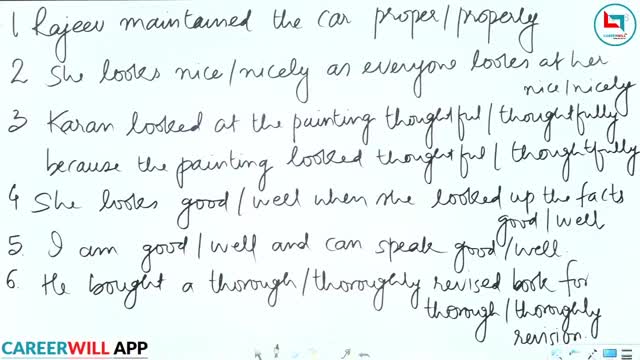 1 Rajeev maintained the car proper/properly
CAREERWILL
2 She looks nice/nicely as everyone looks at her
nice/nicely
3 Karan looked at the painting thoughtful/thoughtfully
because the painting looked thoughtful/thoughtfully
4 She looks good/well when she looked up the facts
good/well
5. I am good/well and can speak good/well.
6. He bought a thorough/thoroughly revised book for
thorough/thoroughly
revision.
CAREERWILL APP